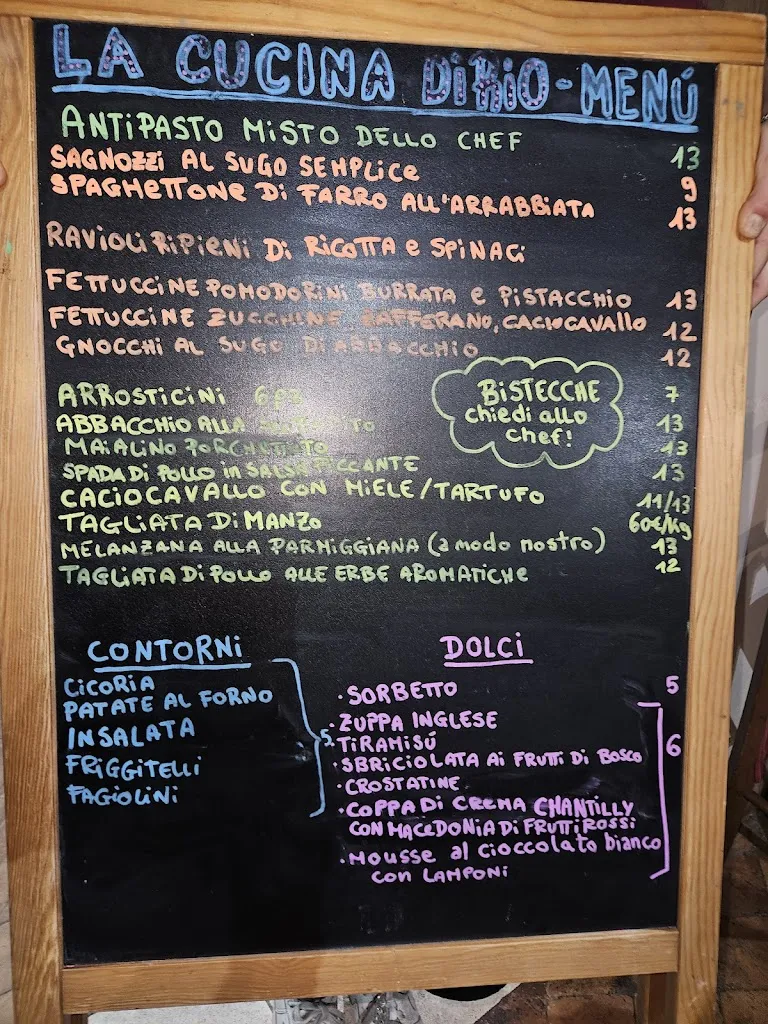 LA CUCINA DI RIO - MENÚ
ANTIPASTO MISTO DELLO CHEF 13
SAGNOZZI AL SUGO SEMPLICE 9
SPAGHETTONE DI FARRO ALL'ARRABBIATA 13
RAVIOLI RIPIENI DI RICOTTA e SPINACI
FETTUCCINE POMODORINI BURRATA e PISTACCHIO 13
FETTUCCINE ZUCCHINE ZAFFERANO, CACIOCAVALLO 12
GNOCCHI AL SUGO DI ABBACCHIO 12
ARROSTICINI 6 pz 7
ABBACCHIO ALLA 13
MAIALINO PORCHETTATO 13
SPADA DI POLLO in SALSA PICCANTE 13
CACIOCAVALLO CON MIELE/TARTUFO 11/13
TAGLIATA DI MANZO 60€/Kg
MELANZANA ALLA PARMIGGIANA (a modo nostro) 13
TAGLIATA DI POLLO ALLE ERBE AROMATICHE 12
BISTECCHE
chiedi allo
chef!
CONTORNI
CICORIA
PATATE AL FORNO
INSALATA
FRIGGITELLI
FAGIOLINI
5
DOLCI
· SORBETTO 5
· ZUPPA INGLESE
· TIRAMISÚ 6
· SBRICIOLATA AI FRUTTI DI BOSCO
· CROSTATINE
· COPPA DI CREMA CHANTILLY
CON MACEDONIA DI FRUTTI ROSSI
· MOUSSE al cioccolato bianco
con LAMPONI